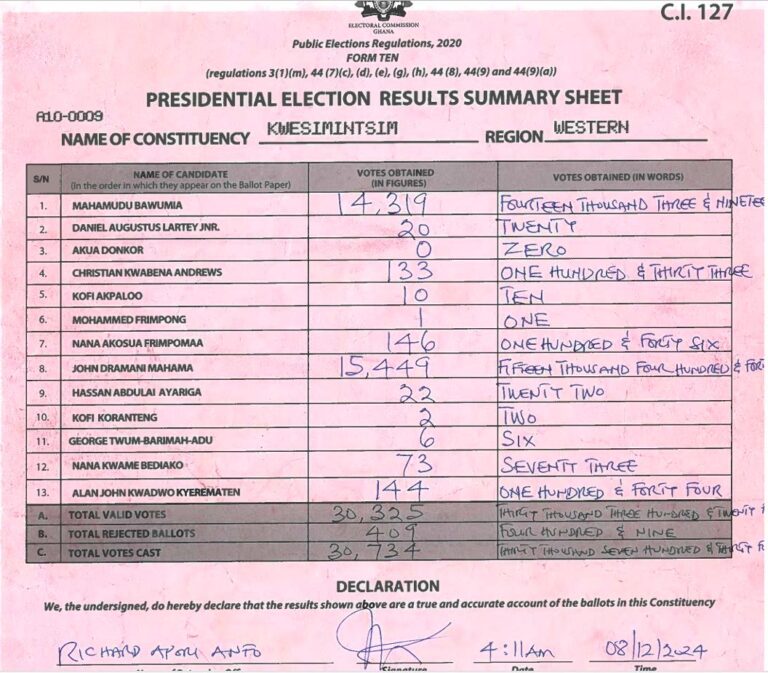 ELECTORAL COMMISSION
GHANA
C.I. 127
Public Elections Regulations, 2020
FORM TEN
(regulations 3(1)(m), 44 (7)(c), (d), (e), (g), (h), 44 (8), 44(9) and 44(9)(a))
PRESIDENTIAL ELECTION RESULTS SUMMARY SHEET
A10-0009
NAME OF CONSTITUENCY KWESIMINTSIM REGION WESTERN
S/N NAME OF CANDIDATE (In the order in which they appear on the Ballot Paper) VOTES OBTAINED (IN FIGURES) VOTES OBTAINED (IN WORDS)
1. MAHAMUDU BAWUMIA 14,319 FOURTEEN THOUSAND THREE & NINETEE
2. DANIEL AUGUSTUS LARTEY JNR. 20 TWENTY
3. AKUA DONKOR 0 ZERO
4. CHRISTIAN KWABENA ANDREWS 133 ONE HUNDRED & THIRTY THREE
5. KOFI AKPALOO 10 TEN
6. MOHAMMED FRIMPONG 1 ONE
7. NANA AKOSUA FRIMPOMAA 146 ONE HUNDRED & FORTY SIX
8. JOHN DRAMANI MAHAMA 15,449 FIFTEEN THOUSAND FOUR HUNDRED & FOR
9. HASSAN ABDULAI AYARIGA 22 TWENTY TWO
10. KOFI KORANTENG 2 TWO
11. GEORGE TWUM-BARIMAH-ADU 6 SIX
12. NANA KWAME BEDIAKO 73 SEVENTY THREE
13. ALAN JOHN KWADWO KYEREMATEN 144 ONE HUNDRED & FORTY FOUR
A. TOTAL VALID VOTES 30,325 THIRTY THOUSAND THREE HUNDRED & TWENTY
B. TOTAL REJECTED BALLOTS 409 FOUR HUNDRED & NINE
C. TOTAL VOTES CAST 30,734 THIRTY THOUSAND SEVEN HUNDRED & THIRTY F
DECLARATION
We, the undersigned, do hereby declare that the results shown above are a true and accurate account of the ballots in this Constituency
RICHARD 4:11AM 08/12/2024
Signature Date Time